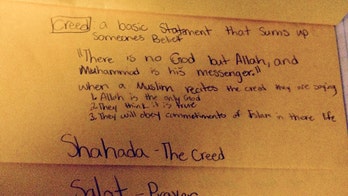 Creed a basic Statment that sums up
someones Belief
"There is no God but Allah, and
Muhammad is his messenger."
when a Muslim recites the creed they are saying
1. Allah is the only God
2. They think it is true
3. They will obey commetments of Islam in there life
Shahada - The Creed
Salat - Prayer